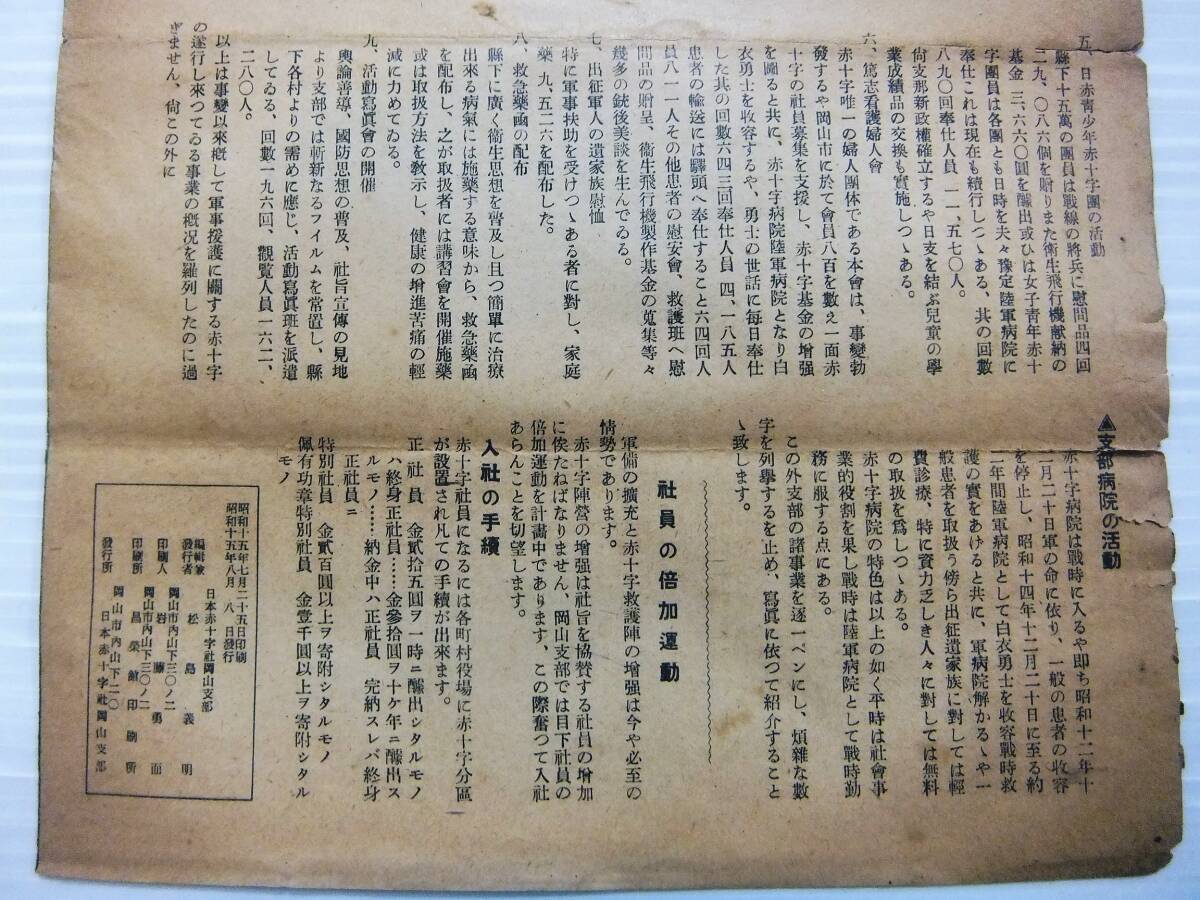 五、日赤青少年赤十字團の活動
縣下十五萬の團員は戰線の將兵に慰問品四回
二九、〇八六個を贈りまた衞生飛行機献納の
基金 三、六六〇圓を醵出或ひは女子青年赤十
字團員は各團とも日時を夫々豫定陸軍病院に
奉仕これは現在も續行しつゝある、其の回數
八九〇回奉仕人員 一一、五七〇人。
尙支那新政權確立するや日支を結ぶ兒童の學
業成績品の交換も實施しつゝある。
六、篤志看護婦人會
赤十字唯一の婦人團体である本會は、事變勃
發するや岡山市に於て會員八百を數え一面赤
十字の社員募集を支援し、赤十字基金の增强
を圖ると共に、赤十字病院陸軍病院となり白
衣勇士を收容するや、勇士の世話に每日奉仕
した其の回數六四三回奉仕人員 四、一八五人
患者の輸送には驛頭へ奉仕すること六四回人
員八一一人その他患者の慰安會、救護班へ慰
問品の贈呈、衞生飛行機製作基金の蒐集等々
幾多の銃後美談を生んでゐる。
七、出征軍人の遺家族慰恤
特に軍事扶助を受けつゝある者に對し、家庭
藥 九、五二六を配布した。
八、救急藥凾の配布
縣下に廣く衞生思想を普及し且つ簡單に治療
出來る病氣には施藥する意味から、救急藥凾
を配布し、之が取扱者には講習會を開催施藥
或は取扱方法を敎示し、健康の增進苦痛の輕
減に力めてゐる。
九、活動寫眞會の開催
輿論善導、國防思想の普及、社旨宣傳の見地
より支部では斬新なるフイルムを常置し、縣
下各村よりの需めに應じ、活動寫眞班を派遣
してゐる、回數一九六回、觀覽人員一六二、
二八〇人。
以上は事變以來概して軍事援護に關する赤十字
の遂行し來つてゐる事業の概況を羅列したのに過
ぎません、尙この外に
▲支部病院の活動
赤十字病院は戰時に入るや卽ち昭和十二年十
二月二十日軍の命に依り、一般の患者の收容
を停止し、昭和十四年十二月二十日に至る約
二年間陸軍病院として白衣勇士を收容戰時救
護の實をあけると共に、軍病院解かるゝや一
般患者を取扱う傍ら出征遺家族に對しては輕
費診療、特に資力乏しき人々に對しては無料
の取扱を爲しつゝある。
赤十字病院の特色は以上の如く平時は社會事
業的役割を果し戰時は陸軍病院として戰時勤
務に服する点にある。
この外支部の諸事業を逐一ペンにし、煩雜な數
字を列擧するを止め、寫眞に依つて紹介すること
ゝ致します。
社員の倍加運動
軍備の擴充と赤十字救護陣の增强は今や必至の
情勢であります。
赤十字陣營の增强は社旨を協贊する社員の增加
に俟たねばなりません、岡山支部では目下社員の
倍加運動を計畫中であります、この際奮つて入社
あらんことを切望します。
入社の手續
赤十字社員になるには各町村役場に赤十字分區
が設置され凡ての手續が出來ます。
正社員 金貳拾五圓ヲ一時ニ醵出シタルモノ
ハ終身正社員……金參拾圓ヲ十ケ年ニ醵出ス
ルモノ……納金中ハ正社員 完納スレバ終身
正社員ニ
特別社員 金貳百圓以上ヲ寄附シタルモノ
佩有功章特別社員 金壹千圓以上ヲ寄附シタル
モノ
昭和十五年七月二十五日印刷
昭和十五年八月 八 日發行
日本赤十字社岡山支部
編輯兼發行者 松島義明
岡山市內山下三〇ノ二
印刷人 岩藤勇面
岡山市內山下三〇ノ二
印刷所 昌榮館印刷所
岡山市內山下二〇
發行所 日本赤十字社岡山支部